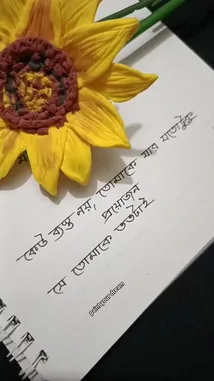 কেউ ব্যস্ত নয়, তোমাকে যার যতোটুকু
প্রয়োজন
সে তোমাকে ততটাই